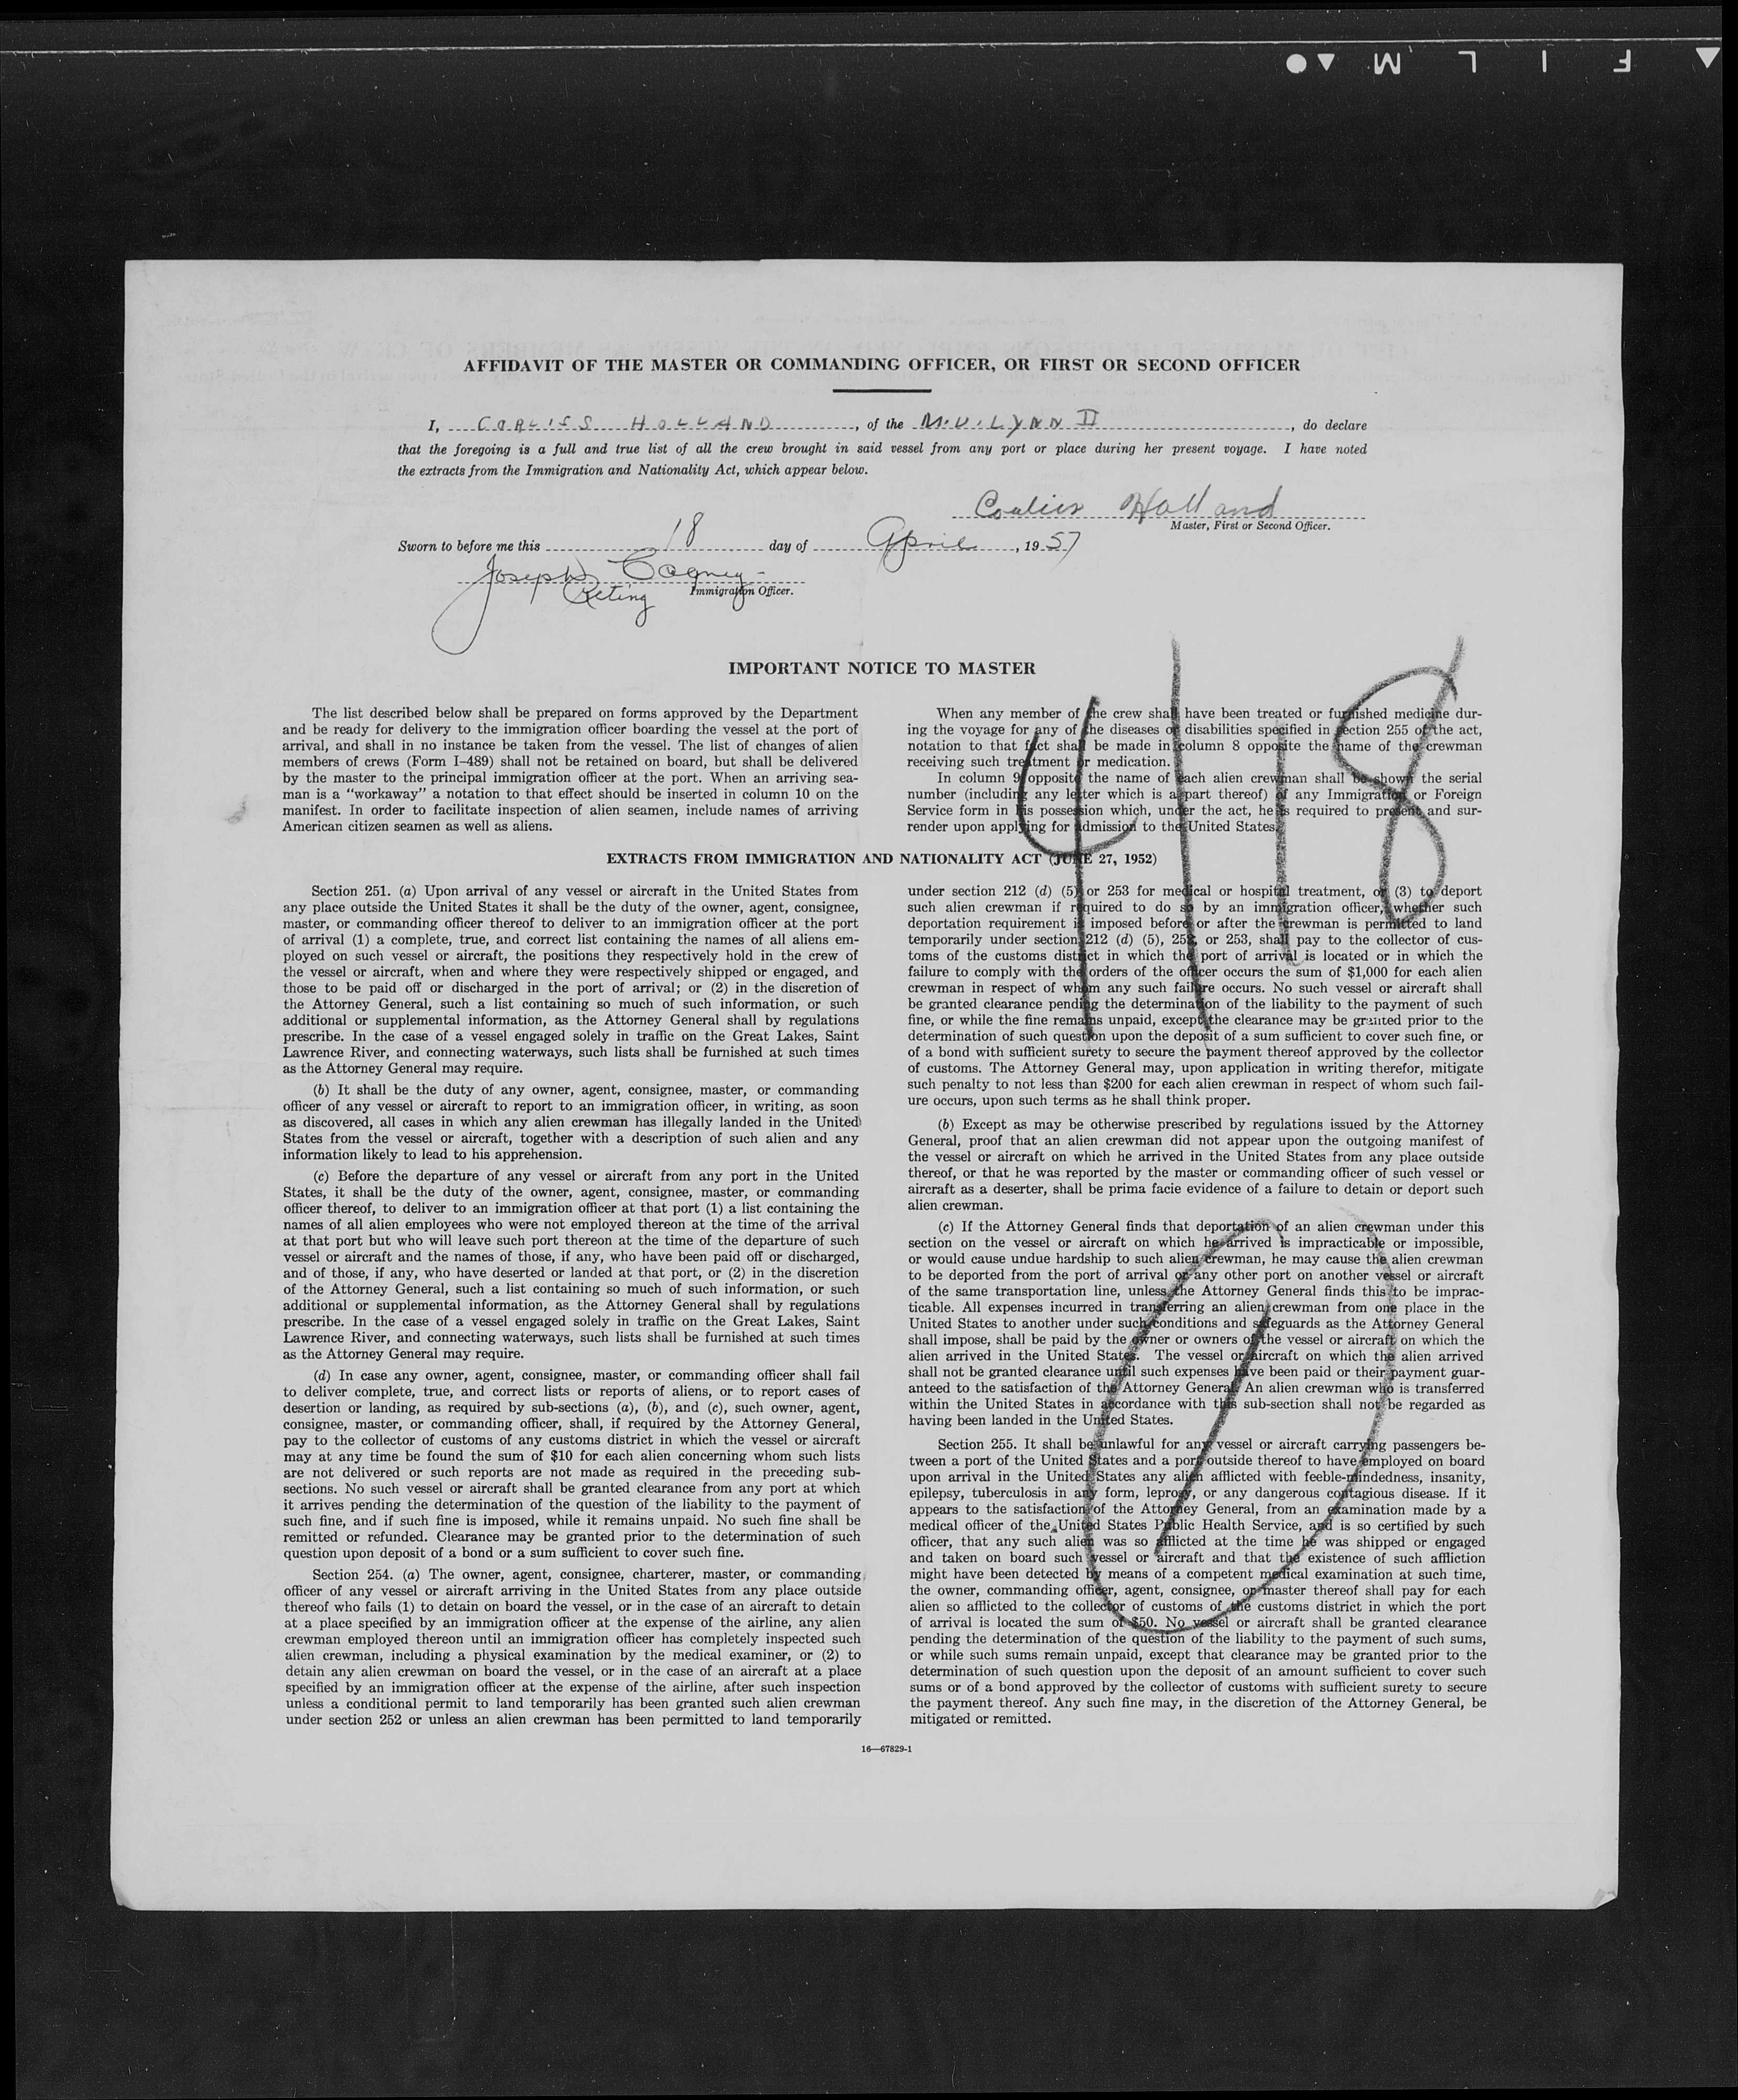 FILM
AFFIDAVIT OF THE MASTER OR COMMANDING OFFICER, OR FIRST OR SECOND OFFICER
I, CORLISS HOLLAND, of the M.V. LYNN II, do declare
that the foregoing is a full and true list of all the crew brought in said vessel from any port or place during her present voyage. I have noted
the extracts from the Immigration and Nationality Act, which appear below.
Holland
Master, First or Second Officer.
Sworn to before me this 18 day of April, 1957
Joseph Cagney
Acting Immigration Officer.
IMPORTANT NOTICE TO MASTER
The list described below shall be prepared on forms approved by the Department
and be ready for delivery to the immigration officer boarding the vessel at the port of
arrival, and shall in no instance be taken from the vessel. The list of changes of alien
members of crews (Form I–489) shall not be retained on board, but shall be delivered
by the master to the principal immigration officer at the port. When an arriving sea-
man is a "workaway" a notation to that effect should be inserted in column 10 on the
manifest. In order to facilitate inspection of alien seamen, include names of arriving
American citizen seamen as well as aliens.
When any member of the crew shall have been treated or furnished medicine dur-
ing the voyage for any of the diseases or disabilities specified in section 255 of the act,
notation to that fact shall be made in column 8 opposite the name of the crewman
receiving such treatment or medication.
In column 9 opposite the name of each alien crewman shall be shown the serial
number (including any letter which is a part thereof) of any Immigration or Foreign
Service form in his possession which, under the act, he is required to present and sur-
render upon applying for admission to the United States.
4/18
EXTRACTS FROM IMMIGRATION AND NATIONALITY ACT (JUNE 27, 1952)
Section 251. (a) Upon arrival of any vessel or aircraft in the United States from
any place outside the United States it shall be the duty of the owner, agent, consignee,
master, or commanding officer thereof to deliver to an immigration officer at the port
of arrival (1) a complete, true, and correct list containing the names of all aliens em-
ployed on such vessel or aircraft, the positions they respectively hold in the crew of
the vessel or aircraft, when and where they were respectively shipped or engaged, and
those to be paid off or discharged in the port of arrival; or (2) in the discretion of
the Attorney General, such a list containing so much of such information, or such
additional or supplemental information, as the Attorney General shall by regulations
prescribe. In the case of a vessel engaged solely in traffic on the Great Lakes, Saint
Lawrence River, and connecting waterways, such lists shall be furnished at such times
as the Attorney General may require.
(b) It shall be the duty of any owner, agent, consignee, master, or commanding
officer of any vessel or aircraft to report to an immigration officer, in writing, as soon
as discovered, all cases in which any alien crewman has illegally landed in the United
States from the vessel or aircraft, together with a description of such alien and any
information likely to lead to his apprehension.
(c) Before the departure of any vessel or aircraft from any port in the United
States, it shall be the duty of the owner, agent, consignee, master, or commanding
officer thereof, to deliver to an immigration officer at that port (1) a list containing the
names of all alien employees who were not employed thereon at the time of the arrival
at that port but who will leave such port thereon at the time of the departure of such
vessel or aircraft and the names of those, if any, who have been paid off or discharged,
and of those, if any, who have deserted or landed at that port, or (2) in the discretion
of the Attorney General, such a list containing so much of such information, or such
additional or supplemental information, as the Attorney General shall by regulations
prescribe. In the case of a vessel engaged solely in traffic on the Great Lakes, Saint
Lawrence River, and connecting waterways, such lists shall be furnished at such times
as the Attorney General may require.
(d) In case any owner, agent, consignee, master, or commanding officer shall fail
to deliver complete, true, and correct lists or reports of aliens, or to report cases of
desertion or landing, as required by sub-sections (a), (b), and (c), such owner, agent,
consignee, master, or commanding officer, shall, if required by the Attorney General,
pay to the collector of customs of any customs district in which the vessel or aircraft
may at any time be found the sum of $10 for each alien concerning whom such lists
are not delivered or such reports are not made as required in the preceding sub-
sections. No such vessel or aircraft shall be granted clearance from any port at which
it arrives pending the determination of the question of the liability to the payment of
such fine, and if such fine is imposed, while it remains unpaid. No such fine shall be
remitted or refunded. Clearance may be granted prior to the determination of such
question upon deposit of a bond or a sum sufficient to cover such fine.
Section 254. (a) The owner, agent, consignee, charterer, master, or commanding
officer of any vessel or aircraft arriving in the United States from any place outside
thereof who fails (1) to detain on board the vessel, or in the case of an aircraft to detain
at a place specified by an immigration officer at the expense of the airline, any alien
crewman employed thereon until an immigration officer has completely inspected such
alien crewman, including a physical examination by the medical examiner, or (2) to
detain any alien crewman on board the vessel, or in the case of an aircraft at a place
specified by an immigration officer at the expense of the airline, after such inspection
unless a conditional permit to land temporarily has been granted such alien crewman
under section 252 or unless an alien crewman has been permitted to land temporarily
under section 212 (d) (5) or 253 for medical or hospital treatment, or (3) to deport
such alien crewman if required to do so by an immigration officer, whether such
deportation requirement is imposed before or after the crewman is permitted to land
temporarily under section 212 (d) (5), 252, or 253, shall pay to the collector of cus-
toms of the customs district in which the port of arrival is located or in which the
failure to comply with the orders of the officer occurs the sum of $1,000 for each alien
crewman in respect of whom any such failure occurs. No such vessel or aircraft shall
be granted clearance pending the determination of the liability to the payment of such
fine, or while the fine remains unpaid, except the clearance may be granted prior to the
determination of such question upon the deposit of a sum sufficient to cover such fine, or
of a bond with sufficient surety to secure the payment thereof approved by the collector
of customs. The Attorney General may, upon application in writing therefor, mitigate
such penalty to not less than $200 for each alien crewman in respect of whom such fail-
ure occurs, upon such terms as he shall think proper.
(b) Except as may be otherwise prescribed by regulations issued by the Attorney
General, proof that an alien crewman did not appear upon the outgoing manifest of
the vessel or aircraft on which he arrived in the United States from any place outside
thereof, or that he was reported by the master or commanding officer of such vessel or
aircraft as a deserter, shall be prima facie evidence of a failure to detain or deport such
alien crewman.
(c) If the Attorney General finds that deportation of an alien crewman under this
section on the vessel or aircraft on which he arrived is impracticable or impossible,
or would cause undue hardship to such alien crewman, he may cause the alien crewman
to be deported from the port of arrival or any other port on another vessel or aircraft
of the same transportation line, unless the Attorney General finds this to be imprac-
ticable. All expenses incurred in transferring an alien crewman from one place in the
United States to another under such conditions and safeguards as the Attorney General
shall impose, shall be paid by the owner or owners of the vessel or aircraft on which the
alien arrived in the United States. The vessel or aircraft on which the alien arrived
shall not be granted clearance until such expenses have been paid or their payment guar-
anteed to the satisfaction of the Attorney General. An alien crewman who is transferred
within the United States in accordance with this sub-section shall not be regarded as
having been landed in the United States.
Section 255. It shall be unlawful for any vessel or aircraft carrying passengers be-
tween a port of the United States and a port outside thereof to have employed on board
upon arrival in the United States any alien afflicted with feeble-mindedness, insanity,
epilepsy, tuberculosis in any form, leprosy, or any dangerous contagious disease. If it
appears to the satisfaction of the Attorney General, from an examination made by a
medical officer of the United States Public Health Service, and is so certified by such
officer, that any such alien was so afflicted at the time he was shipped or engaged
and taken on board such vessel or aircraft and that the existence of such affliction
might have been detected by means of a competent medical examination at such time,
the owner, commanding officer, agent, consignee, or master thereof shall pay for each
alien so afflicted to the collector of customs of the customs district in which the port
of arrival is located the sum of $50. No vessel or aircraft shall be granted clearance
pending the determination of the question of the liability to the payment of such sums,
or while such sums remain unpaid, except that clearance may be granted prior to the
determination of such question upon the deposit of an amount sufficient to cover such
sums or of a bond approved by the collector of customs with sufficient surety to secure
the payment thereof. Any such fine may, in the discretion of the Attorney General, be
mitigated or remitted.
1
16—67829-1